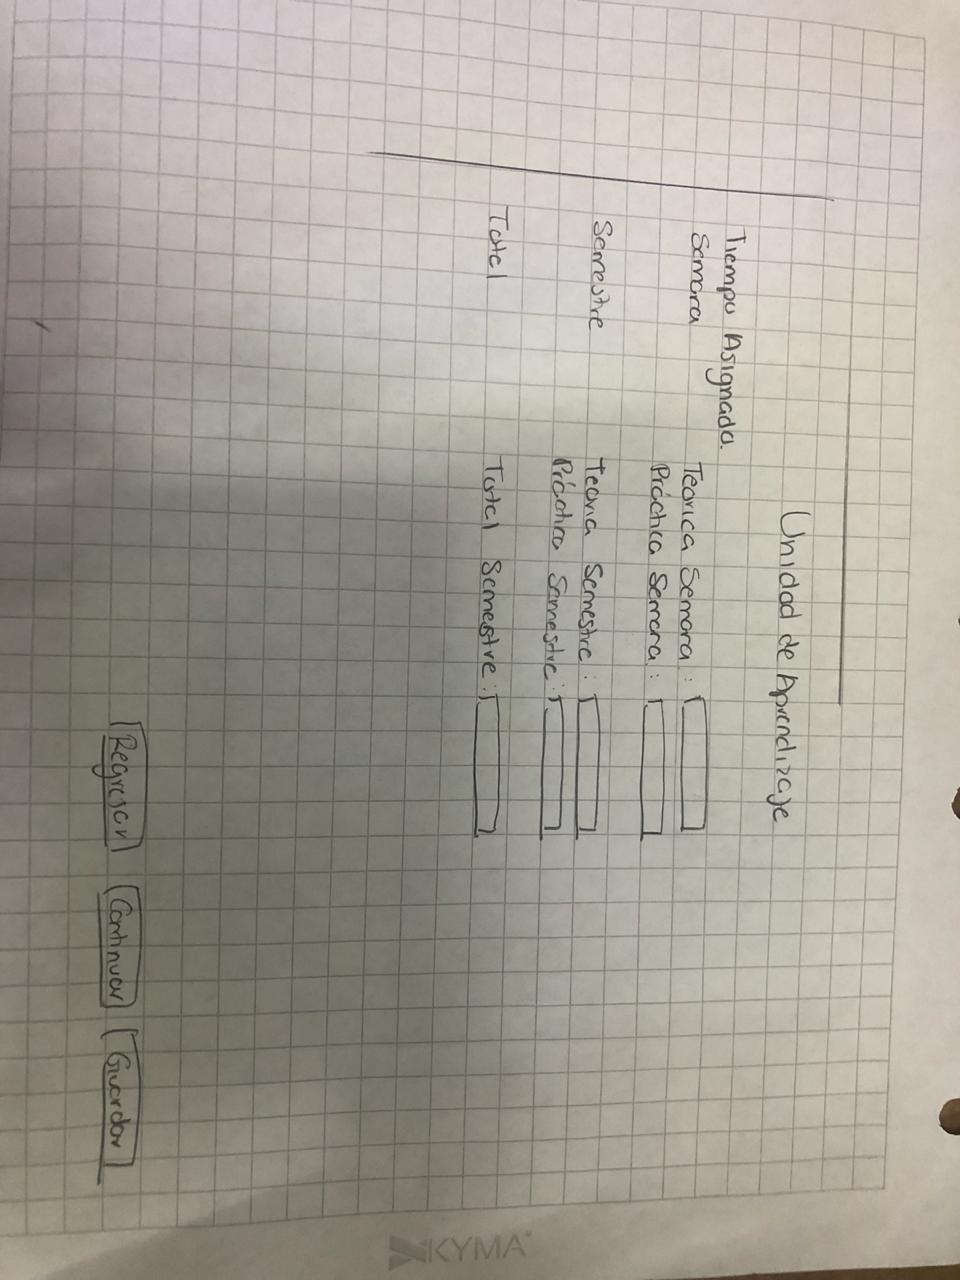 Unidad de Aprendizaje
Tiempo Asignado.
Semana
Teorica Semana :
Práctica Semana :
Semestre
Teoria Semestre :
Práctica Semestre :
Total
Total Semestre :
Regresar
Continuar
Guardar
KYMA